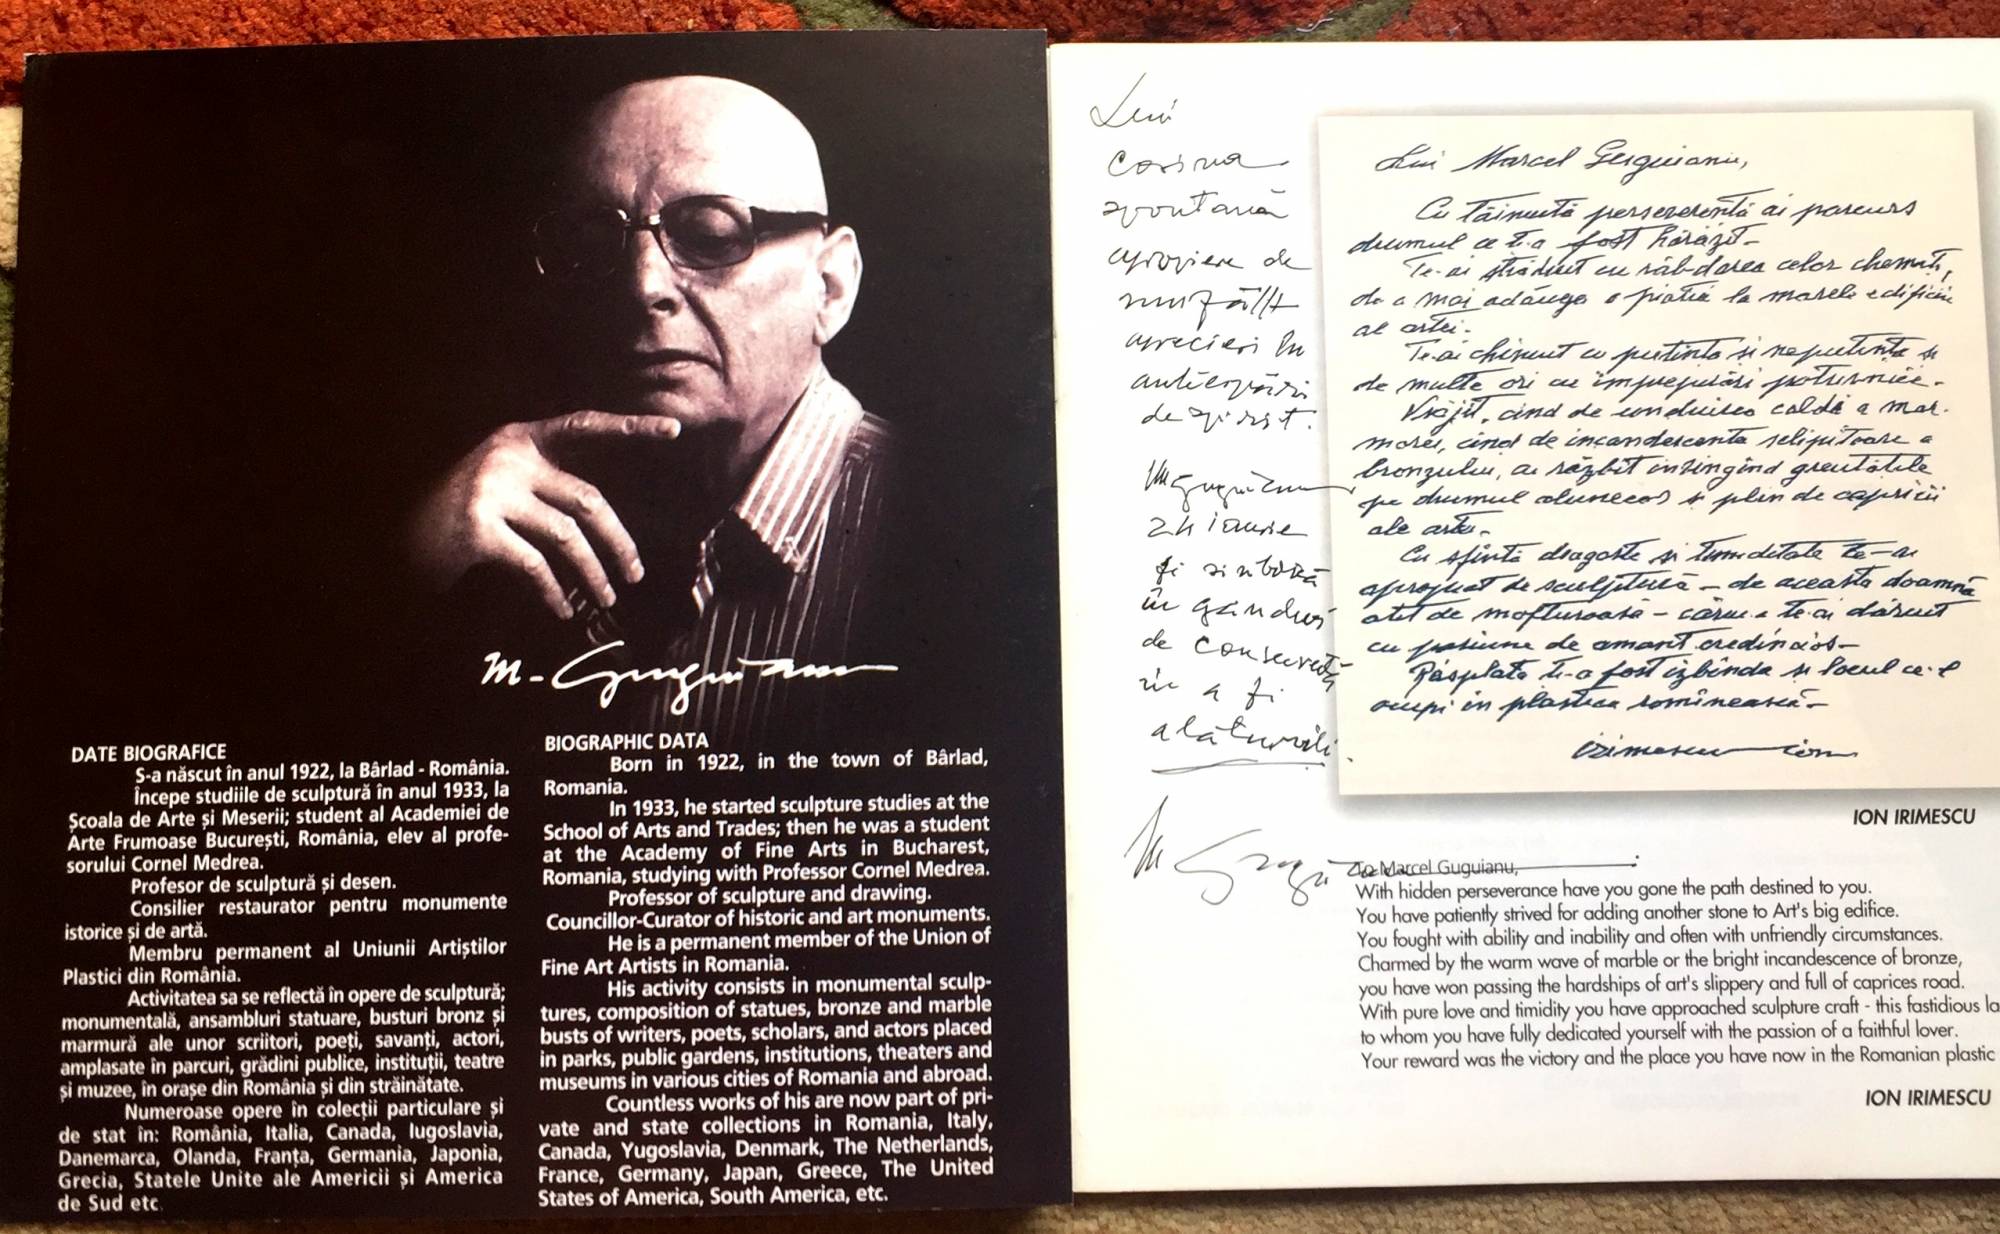 M. Guguianu
DATE BIOGRAFICE
S-a născut în anul 1922, la Bârlad - România.
Începe studiile de sculptură în anul 1933, la
Școala de Arte și Meserii; student al Academiei de
Arte Frumoase București, România, elev al profe-
sorului Cornel Medrea.
Profesor de sculptură și desen.
Consilier restaurator pentru monumente
istorice și de artă.
Membru permanent al Uniunii Artiștilor
Plastici din România.
Activitatea sa se reflectă în opere de sculptură;
monumentală, ansambluri statuare, busturi bronz și
marmură ale unor scriitori, poeți, savanți, actori,
amplasate în parcuri, grădini publice, instituții, teatre
și muzee, în orașe din România și din străinătate.
Numeroase opere în colecții particulare și
de stat în: România, Italia, Canada, Iugoslavia,
Danemarca, Olanda, Franța, Germania, Japonia,
Grecia, Statele Unite ale Americii și America
de Sud etc.
BIOGRAPHIC DATA
Born in 1922, in the town of Bârlad,
Romania.
In 1933, he started sculpture studies at the
School of Arts and Trades; then he was a student
at the Academy of Fine Arts in Bucharest,
Romania, studying with Professor Cornel Medrea.
Professor of sculpture and drawing.
Councillor-Curator of historic and art monuments.
He is a permanent member of the Union of
Fine Art Artists in Romania.
His activity consists in monumental sculp-
tures, composition of statues, bronze and marble
busts of writers, poets, scholars, and actors placed
in parks, public gardens, institutions, theaters and
museums in various cities of Romania and abroad.
Countless works of his are now part of pri-
vate and state collections in Romania, Italy,
Canada, Yugoslavia, Denmark, The Netherlands,
France, Germany, Japan, Greece, The United
States of America, South America, etc.
Corina
spontană
apropiere de
aprecieri în
de spirit.
M Guguianu
24 iunie
în gânduri
de
a fi
alăturili.
M Gugu
Lui Marcel Guguianu,
Cu tăinuită perseverență ai parcurs
drumul ce ți-a fost hărăzit-
Te-ai străduit cu răb-darea celor chemați,
de a mai adăuga o piatră la marele edificiu
al artei.
Te-ai chinuit cu putința și neputința și
de multe ori cu împrejurări potrivnice.
Vrăjit, cînd de unduirea caldă a mar-
morei, cînd de incandescenta sclipitoare a
bronzului, ai răzbit învingînd greutățile
pe drumul alunecos și plin de capricii
ale artei.
Cu sfîntă dragoste și timiditate te-ai
apropiat de sculptură - de această doamnă
atît de mofturoasă - căreia te-ai dăruit
cu pasiune de amant credincios-
Răsplata ți-a fost izbînda și locul ce-l
ocupi în plastica românească-
Irimescu Ion
ION IRIMESCU
To Marcel Guguianu,
With hidden perseverance have you gone the path destined to you.
You have patiently strived for adding another stone to Art's big edifice.
You fought with ability and inability and often with unfriendly circumstances.
Charmed by the warm wave of marble or the bright incandescence of bronze,
you have won passing the hardships of art's slippery and full of caprices road.
With pure love and timidity you have approached sculpture craft - this fastidious la
to whom you have fully dedicated yourself with the passion of a faithful lover.
Your reward was the victory and the place you have now in the Romanian plastic
ION IRIMESCU